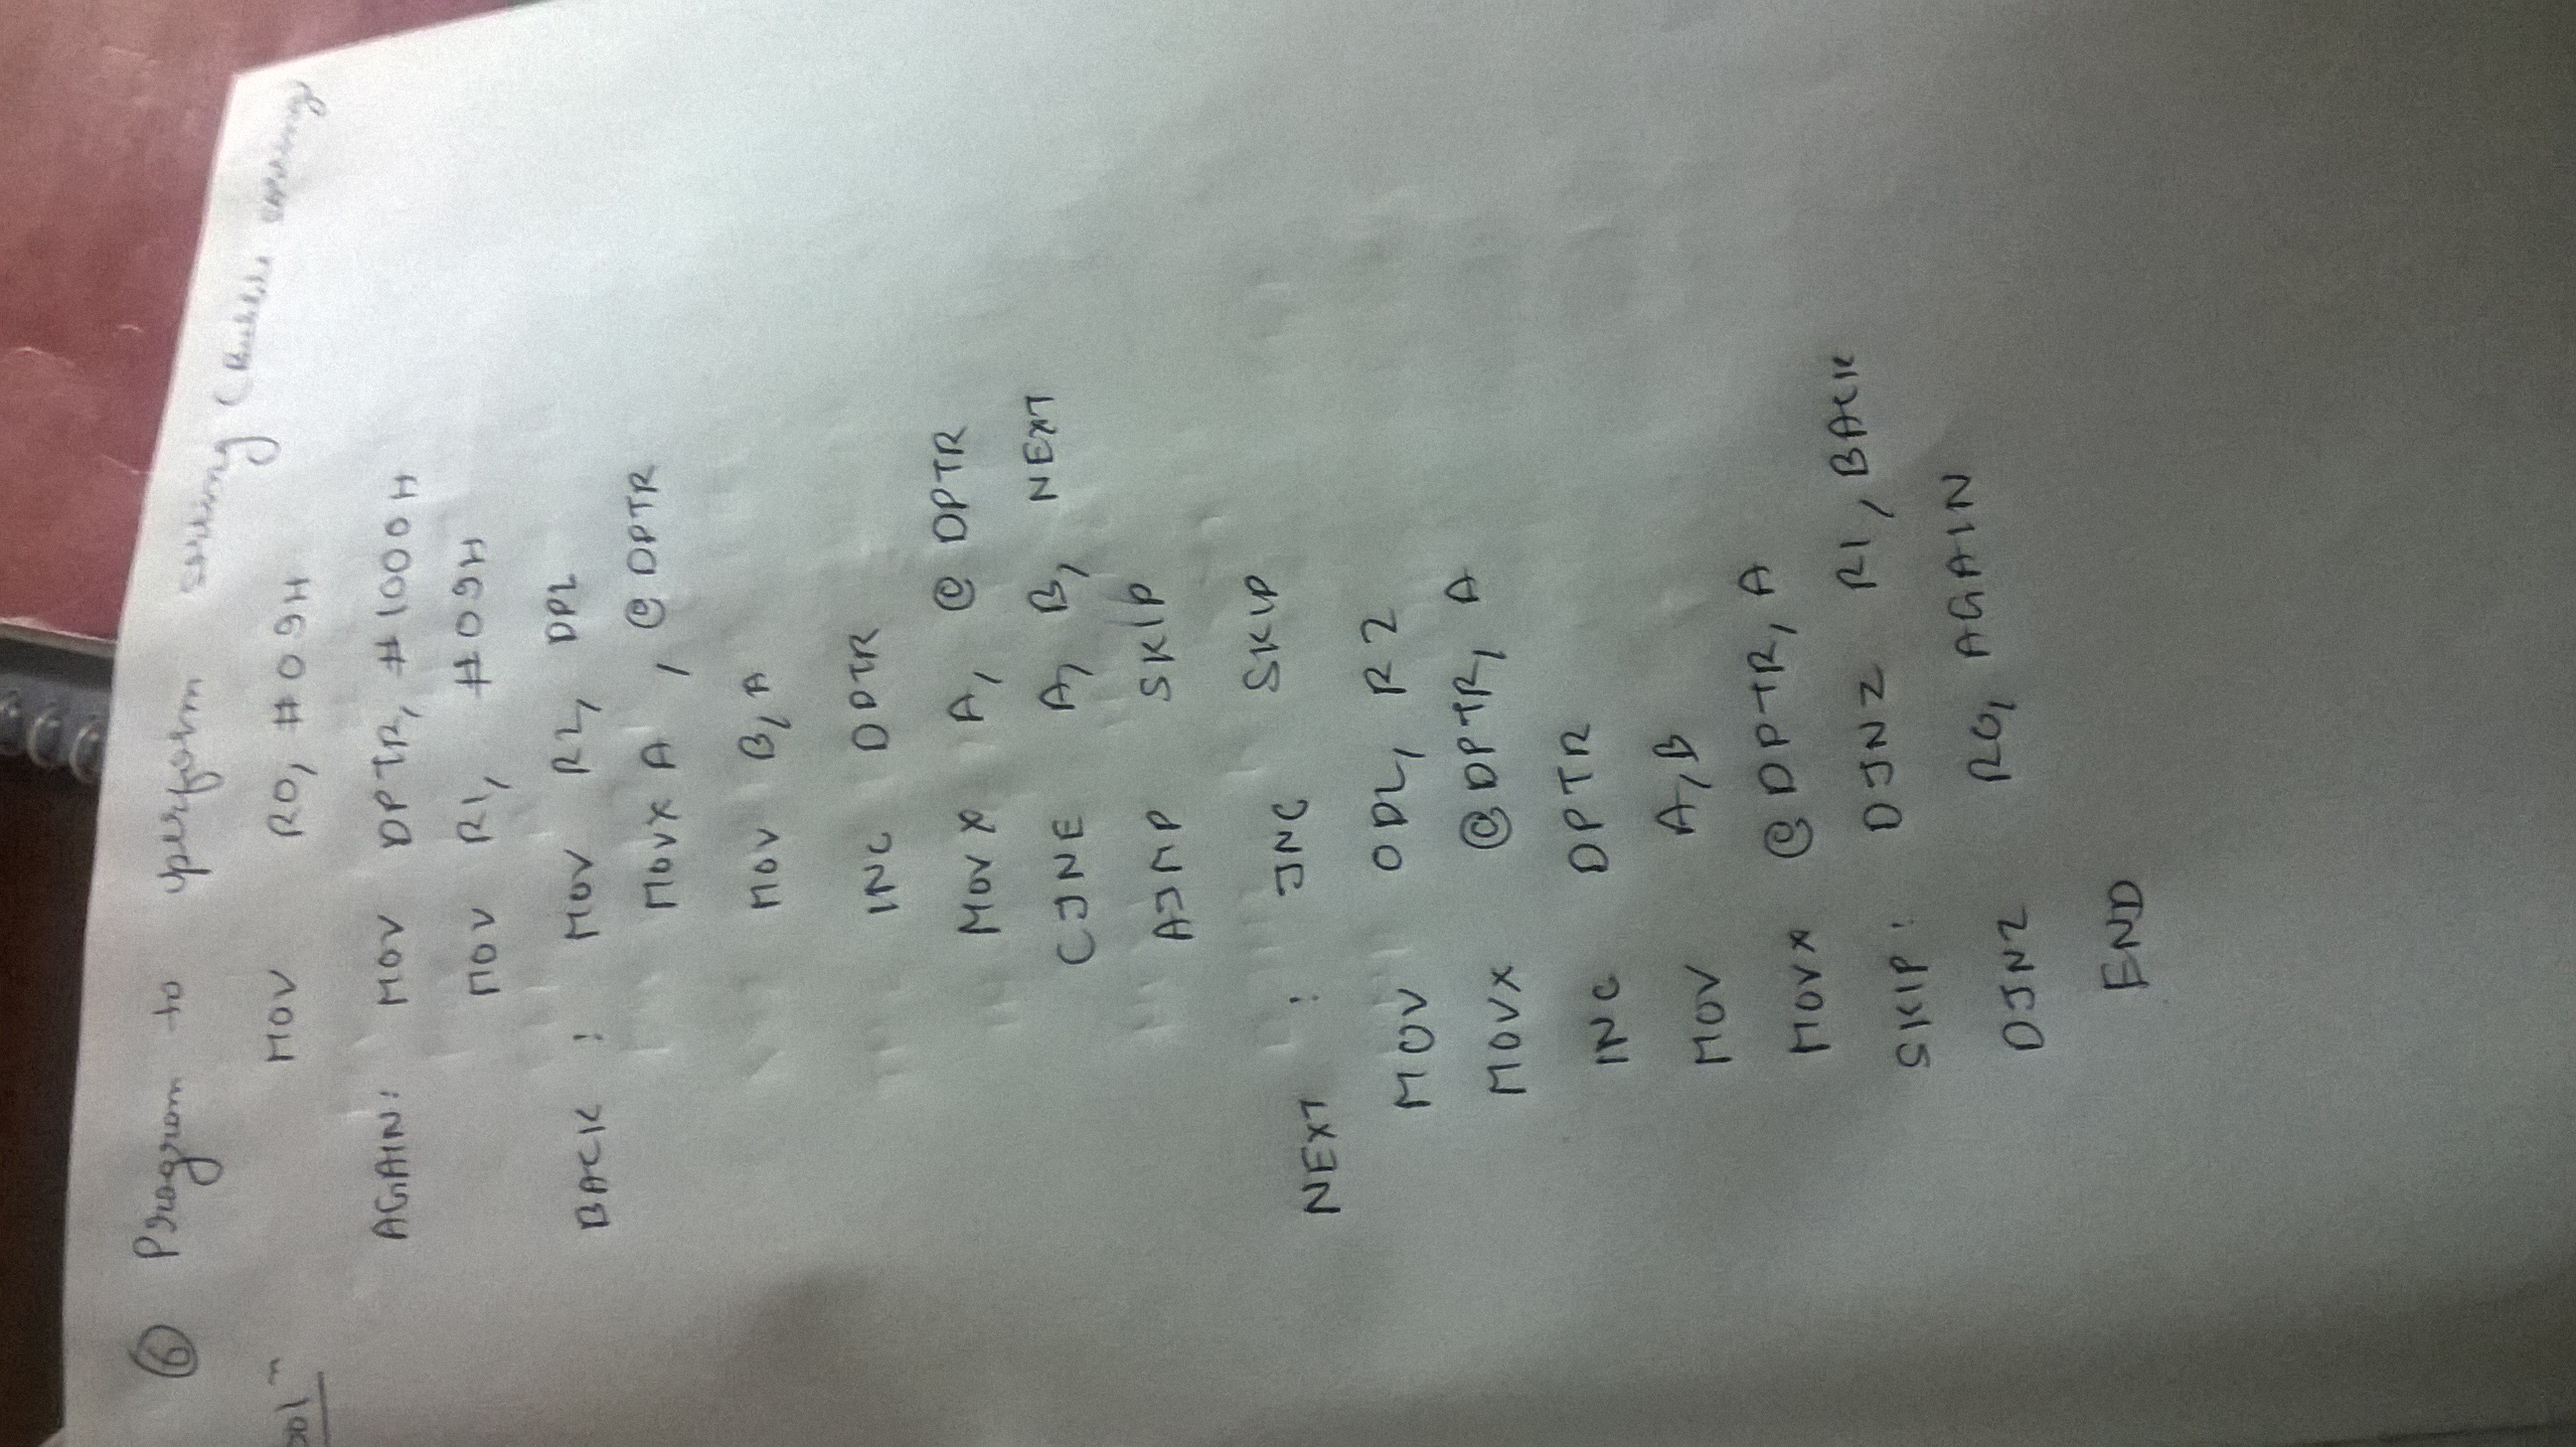 ⑥ Program to perform string (Bubble
sol^n
MOV R0, #09H
AGAIN: MOV DPTR, #1000H
MOV R1, #09H
BACK : MOV R2, DPL
MOVX A , @DPTR
MOV B, A
INC DPTR
MOVX A, @DPTR
CJNE A, B, NEXT
AJMP SKIP
NEXT : JNC SKIP
MOV ODL, R2
MOVX @DPTR, A
INC DPTR
MOV A, B
MOVX @DPTR, A
SKIP : DJNZ R1, BACK
DJNZ R0, AGAIN
END